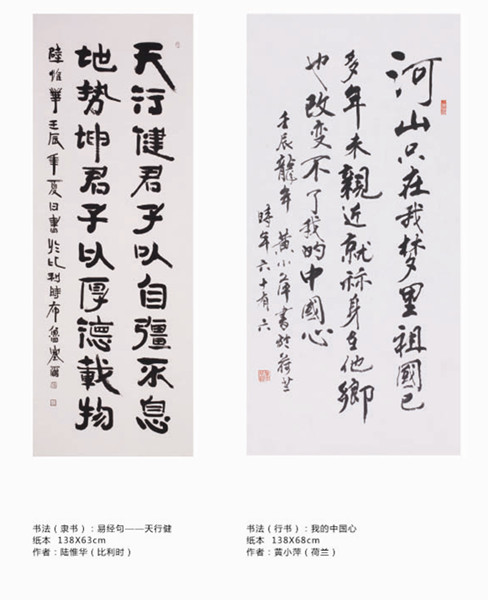 天行健君子以自彊不息
地势坤君子以厚德載物
陸惟華壬辰年夏日書於比利時布魯塞爾
河山只在我梦里祖國已
多年未親近就祘身在他鄉
也改变不了我的中國心
壬辰龍年黄小萍書於荷兰
時年六十有六
书法（隶书）：易经句——天行健
纸本 138X63cm
作者：陆惟华（比利时）
书法（行书）：我的中国心
纸本 138X68cm
作者：黄小萍（荷兰）